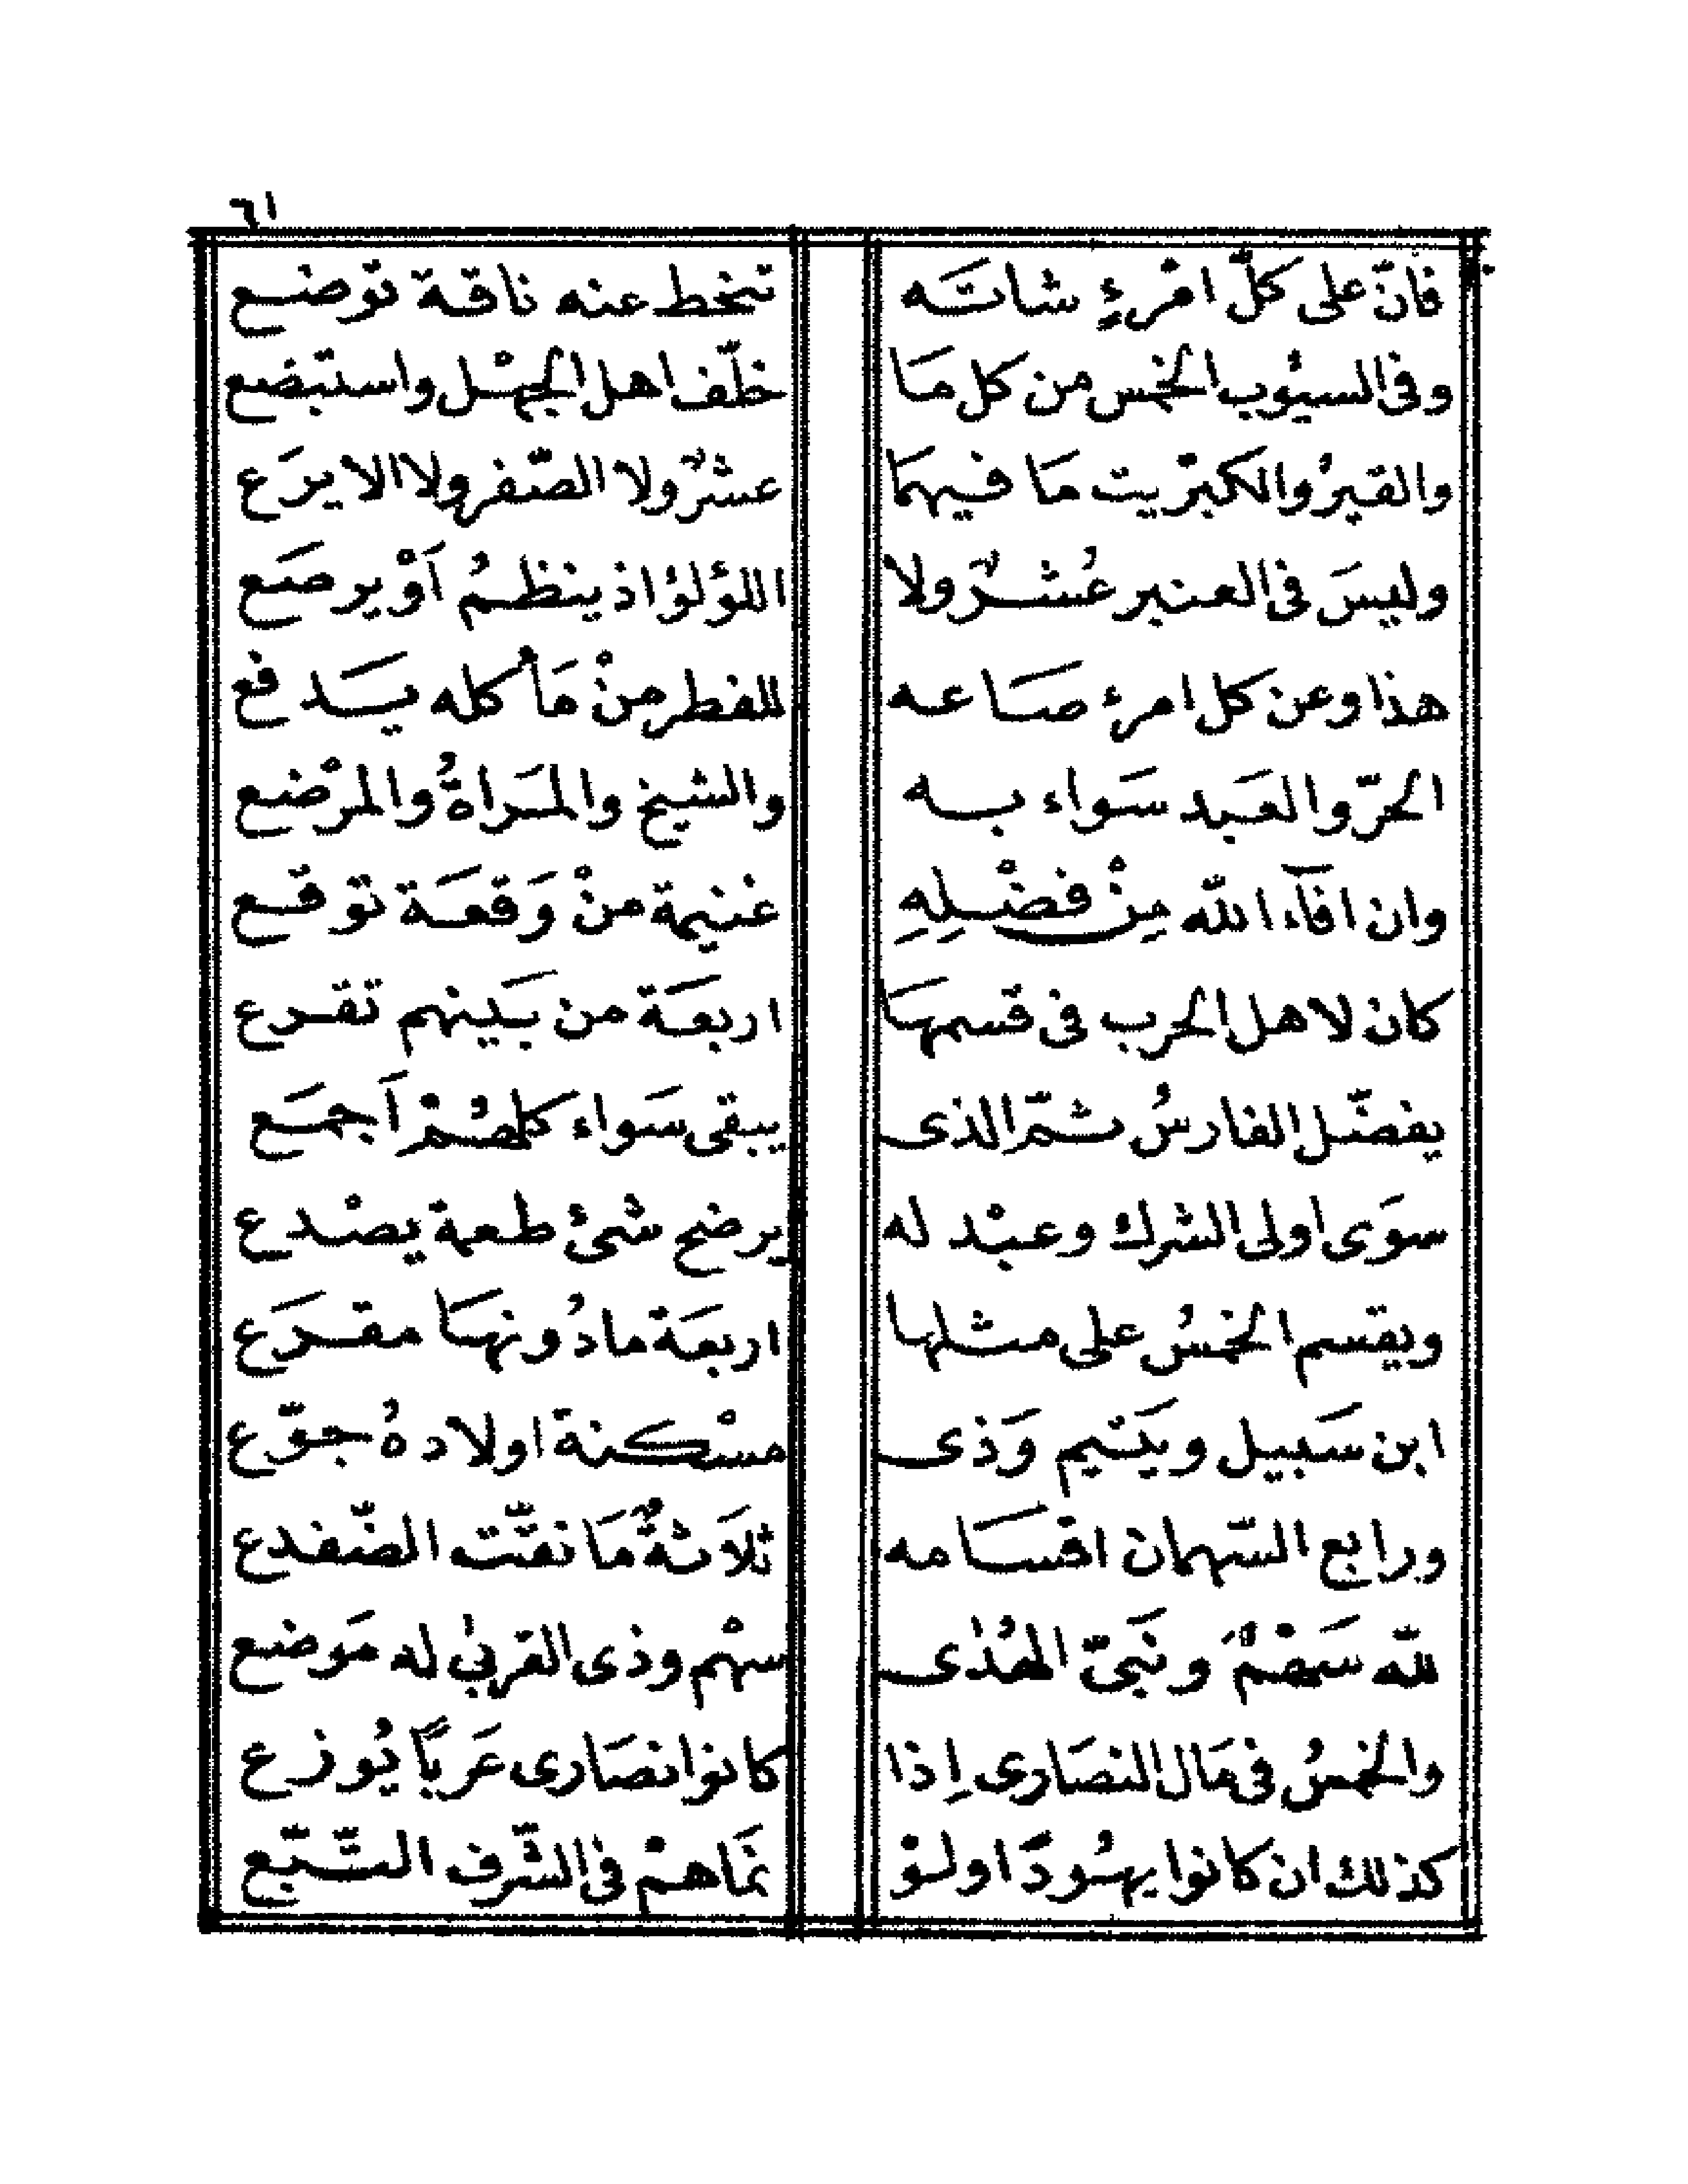 ٦١
فانّ على كلّ امْرءٍ شاتَه تنخط عنه ناقة توضع
وفى السيُوب الخمس من كل مَا خلّف اهل الجهْل واستبضع
والقيرُ والكبرْيت مَا فيهمَا عشرٌ ولا الصّفر ولا الايرَع
وليسَ فى العنبر عُشرٌ ولا اللؤلؤ اذ ينظمُ اَوْ يرصَع
هذا وعن كل امرء صَاعه للفطر منْ مَأكله يَدفع
الحرّ والعَبد سَواء به والشيخ والمَراةُ والمرْضع
وان افآء الله مِنْ فضْلِهِ غنيمة منْ وَقعَة توقع
كان لاهل الحرب فى قسمهَا اربعَة من بَينهم تقرع
يفضّل الفارسُ ثمّ الذى يبقى سَواء كلهُمْ اَجمَع
سوَى اولى الشرك وعبْد له يرضخ شئ طعمة يصْدع
ويقسم الخمسُ على مثلها اربعَة مادُونهَا مقرَع
ابن سَبيل ويَتيم وَذى مسْكنة اولادهُ جوّع
ورابع السّهمان اقسَامه ثلاَثةٌ مَا نقّت الضّفدع
للّه سَهْمٌ ونَبىّ الهُدٰى سهْم وذى القربٰى له مَوضع
والخمسُ فى مَال النصَارى اِذا كانوا نصَارى عَربًا يُوزع
كذلك ان كانوا يهُودًا ولوْ نمَاهمْ فى الشّرف التّبّع